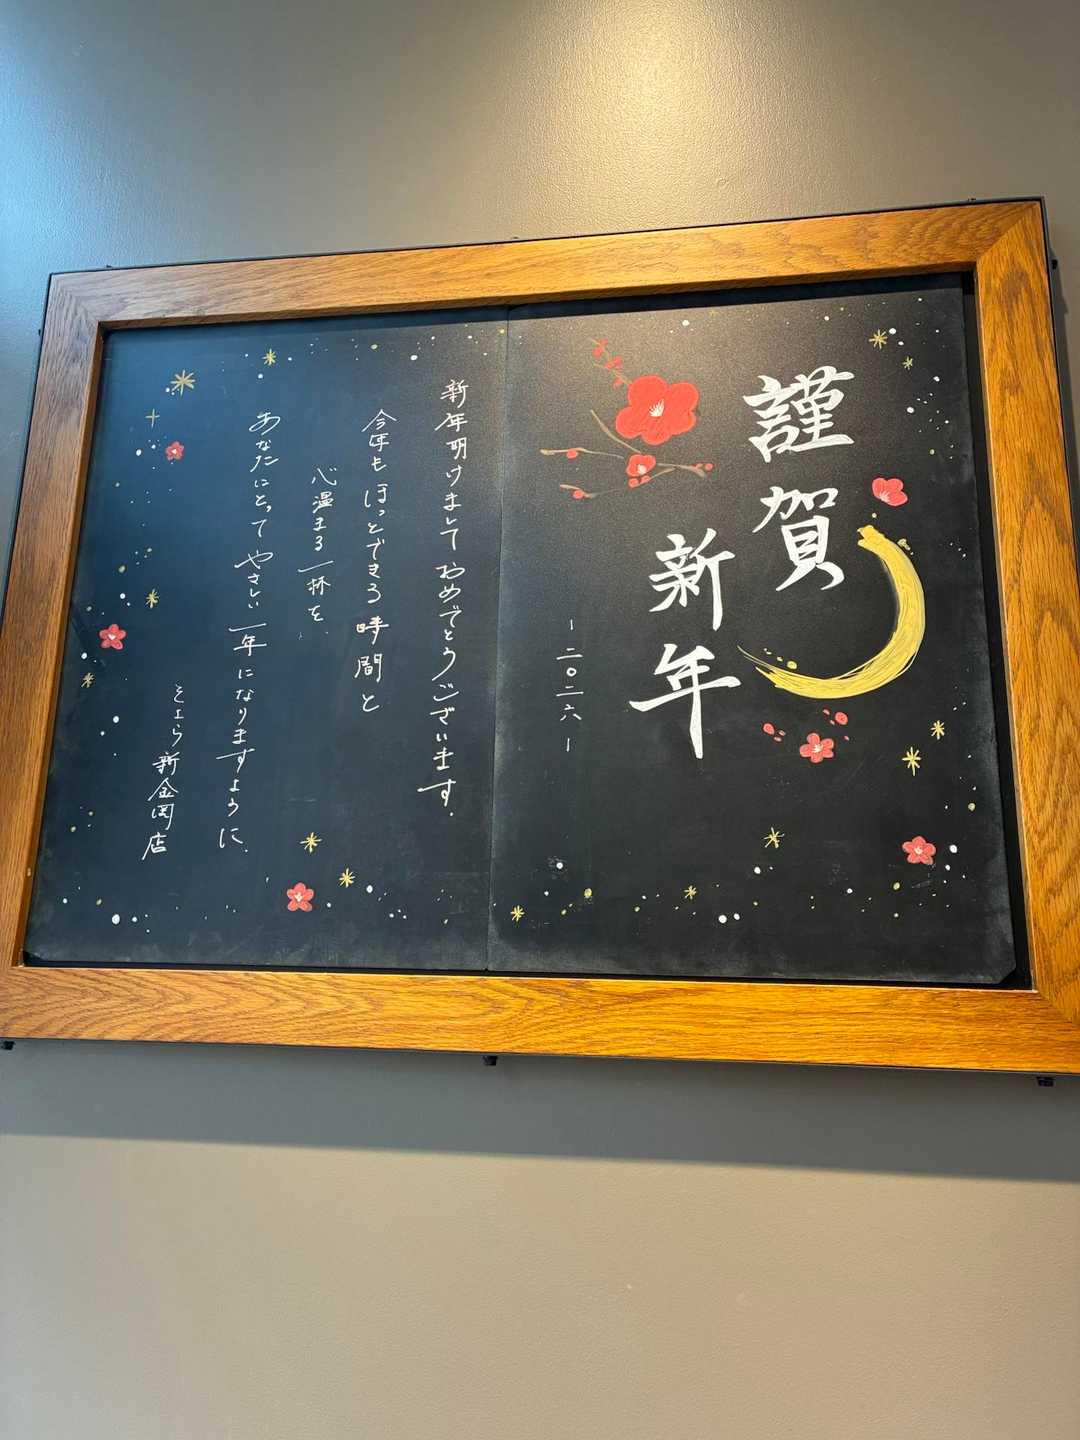 謹賀
新年
-二〇二六-
新年明けましておめでとうございます.
今年もほっとできる時間と
心温まる一杯を、
あなたにとってやさしい一年になりますように.
そよら新金岡店